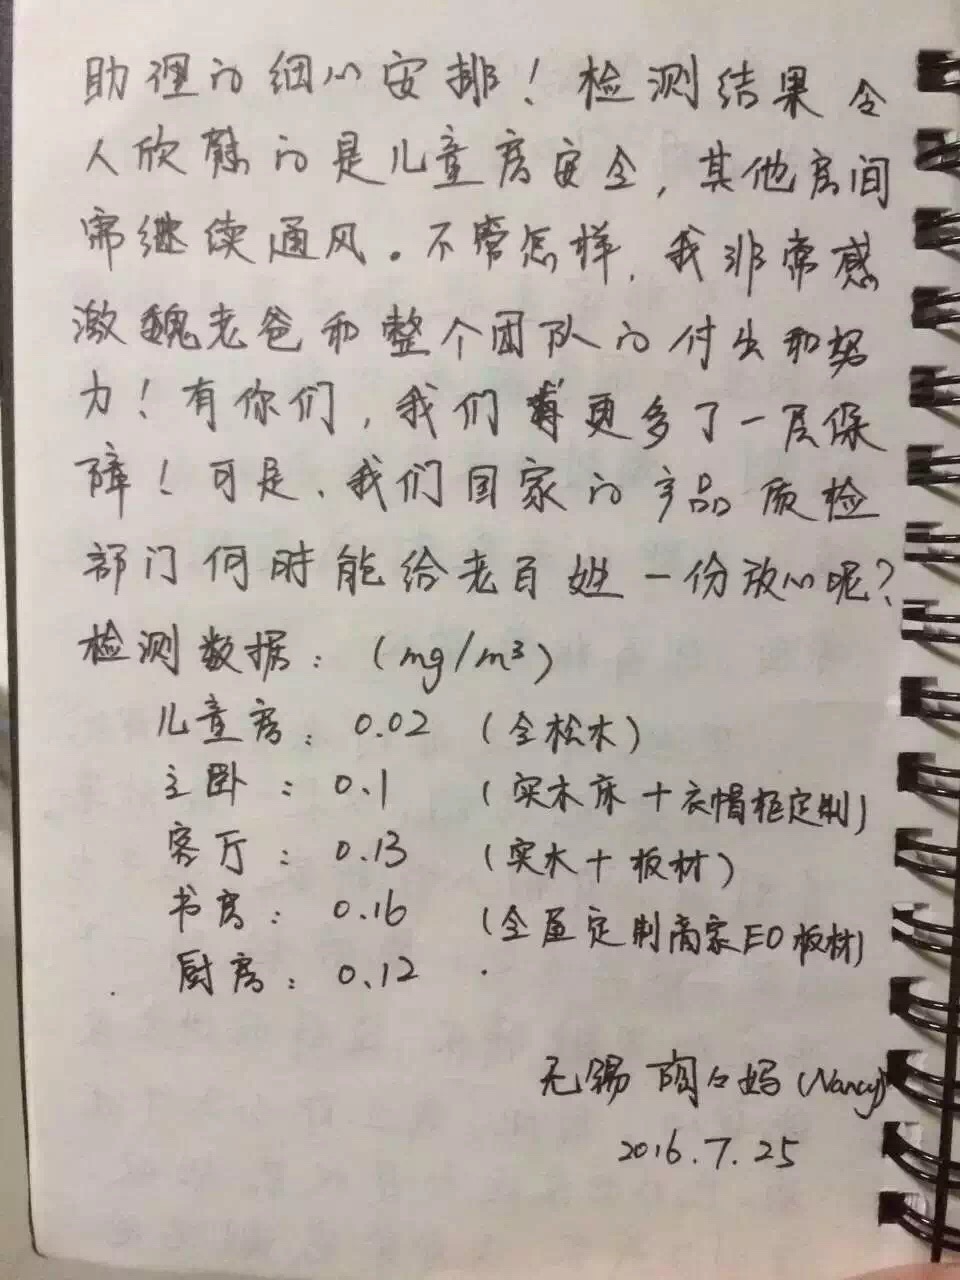 助理的细心安排！检测结果令
人欣慰的是儿童房安全，其他房间
需继续通风。不管怎样，我非常感
激魏老爸和整个团队的付出和努
力！有你们，我们更多了一层保
障！可是、我们国家的产品质检
部门何时能给老百姓一份放心呢？
检测数据：（mg/m³）
儿童房：0.02 （全松木）
主卧：0.1 （实木床＋衣帽柜定制）
客厅：0.13 （实木＋板材）
书房：0.16 （全屋定制商家E0板材）
厨房：0.12
无锡 陶々妈（Nancy）
2016.7.25